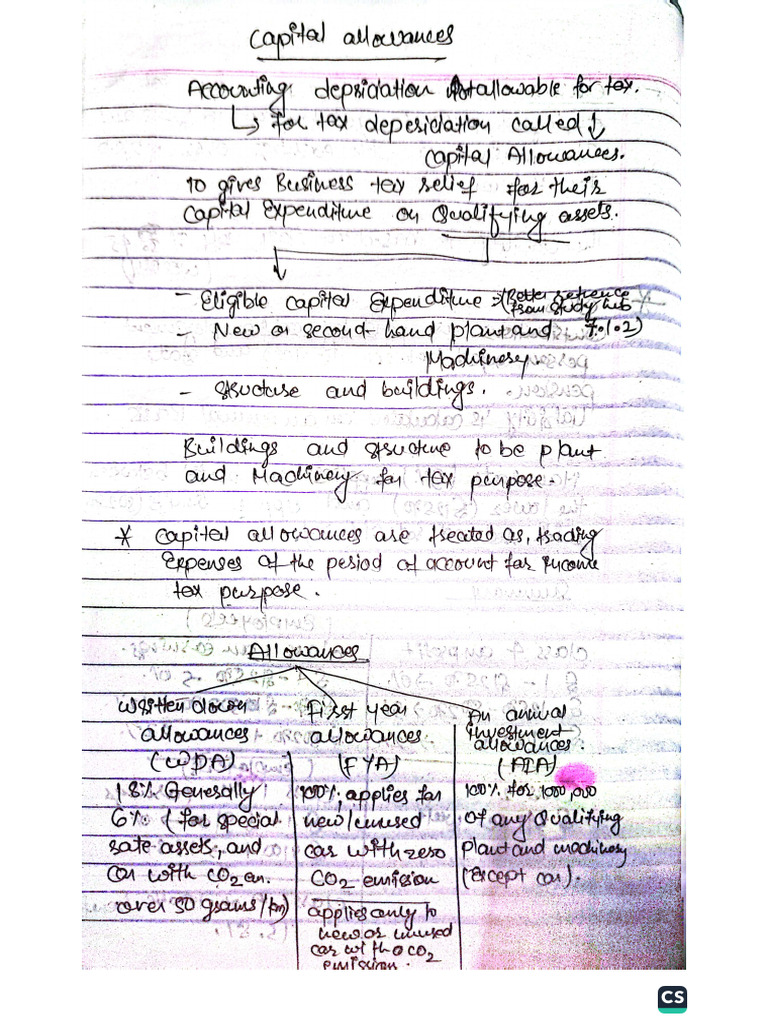 Capital allowances
Accounting depriciation Not allowable for tax.
↳ for tax depesiciation called ↓
Capital Allowances.
to gives Business tax relief for their
Capital Expenditure on Qualifying assets.
- Eligible capital Expenditure → (Better refrence
from study hub
- New or second-hand plant and 7.1.2)
Machinery.
- structure and buildings.
Buildings and structure to be plant
and Machinery for tax purpose.
* Capital allowances are treated as, trading
Expenses of the period of account for income
tax purpose.
Allowances
Written down
allowances
(WDA)
18% Generally
6% (for special
rate assets, and
car with CO2 em.
over 50 grams/km)
First year
allowances
(FYA)
100%, applies for
new/unused
car with zero
CO2 emission
applies only to
new or unused
car with 0 CO2
emission.
An annual
investment
allowances.
(AIA)
100% for 1000,000
of any Qualifying
plant and machinery
(Except car).
CS